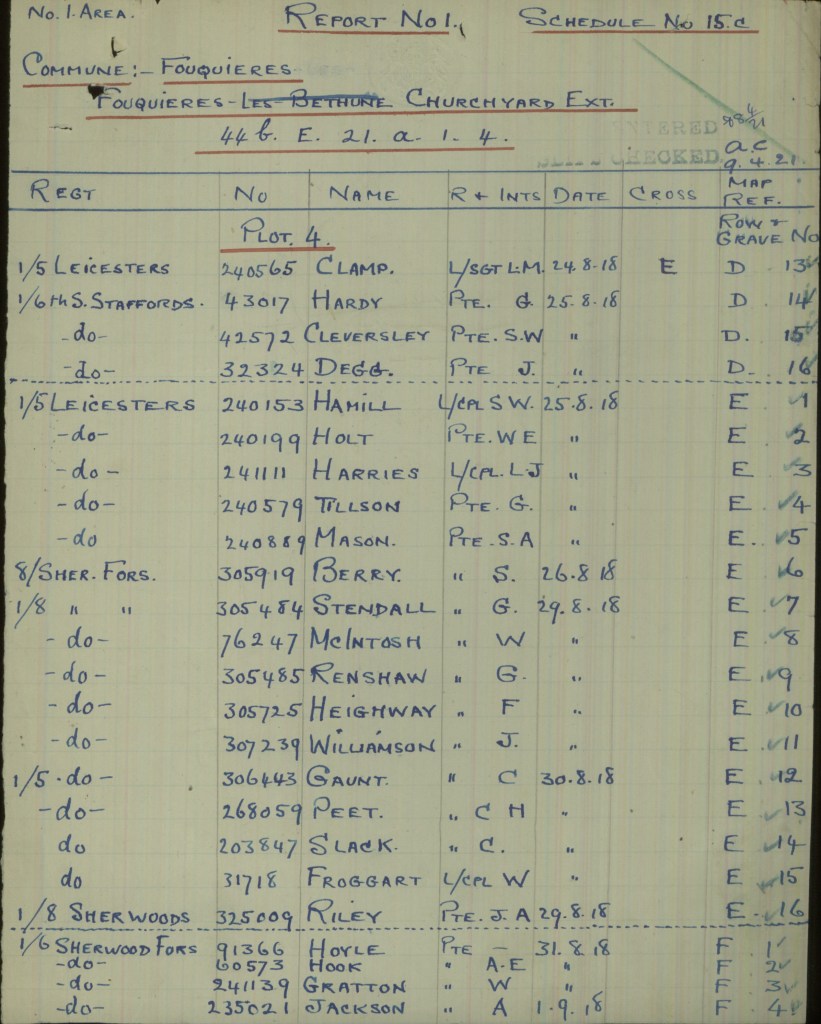 No. 1. AREA. REPORT No 1. SCHEDULE No 15.C
COMMUNE:- FOUQUIERES
FOUQUIERES-LES-BETHUNE CHURCHYARD EXT.
44b. E. 21. a. 1. 4.
CHECKED. a.c
9.4.21.
REGT No NAME R + INTS DATE CROSS MAP REF.
PLOT. 4. ROW & GRAVE No
1/5 LEICESTERS 240565 CLAMP. L/SGT L.M. 24.8.18 E D 13
1/6th S. STAFFORDS. 43017 HARDY PTE. G. 25.8.18 D 14
-do- 42572 CLEVERSLEY PTE. S.W " D. 15
-do- 32324 DEGG. PTE J. " D. 16
1/5 LEICESTERS 240153 HAMILL L/CPL S W. 25.8.18 E 1
-do- 240199 HOLT PTE. W E " E . 2
-do- 241111 HARRIES L/CPL. L.J " E 3
-do- 240579 TILLSON PTE. G. " E . 4
-do 240889 MASON. PTE. S.A " E.. 5
8/SHER. FORS. 305919 BERRY. " S. 26.8 18 E 6
1/8 " " 305484 STENDALL " G. 29.8.18 E . 7
-do- 76247 McINTOSH " W " E . 8
-do- 305485 RENSHAW " G. " E . 9
-do- 305725 HEIGHWAY " F " E 10
-do- 307239 WILLIAMSON " J. " E . 11
1/5.do- 306443 GAUNT. " C 30.8.18 E . 12
-do- 268059 PEET. " C H " E . 13
do 203847 SLACK. " C. " E 14
do 31718 FROGGART L/CPL W " E 15
1/8 SHERWOODS 325009 RILEY PTE. J. A 29.8.18 E. 16
1/6 SHERWOOD FORS 91366 HOYLE PTE - 31.8.18 F 1
-do- 60573 HOOK " A.E " F 2
-do- 241139 GRATTON " W " F 3
-do- 235021 JACKSON " A 1.9.18 F 4